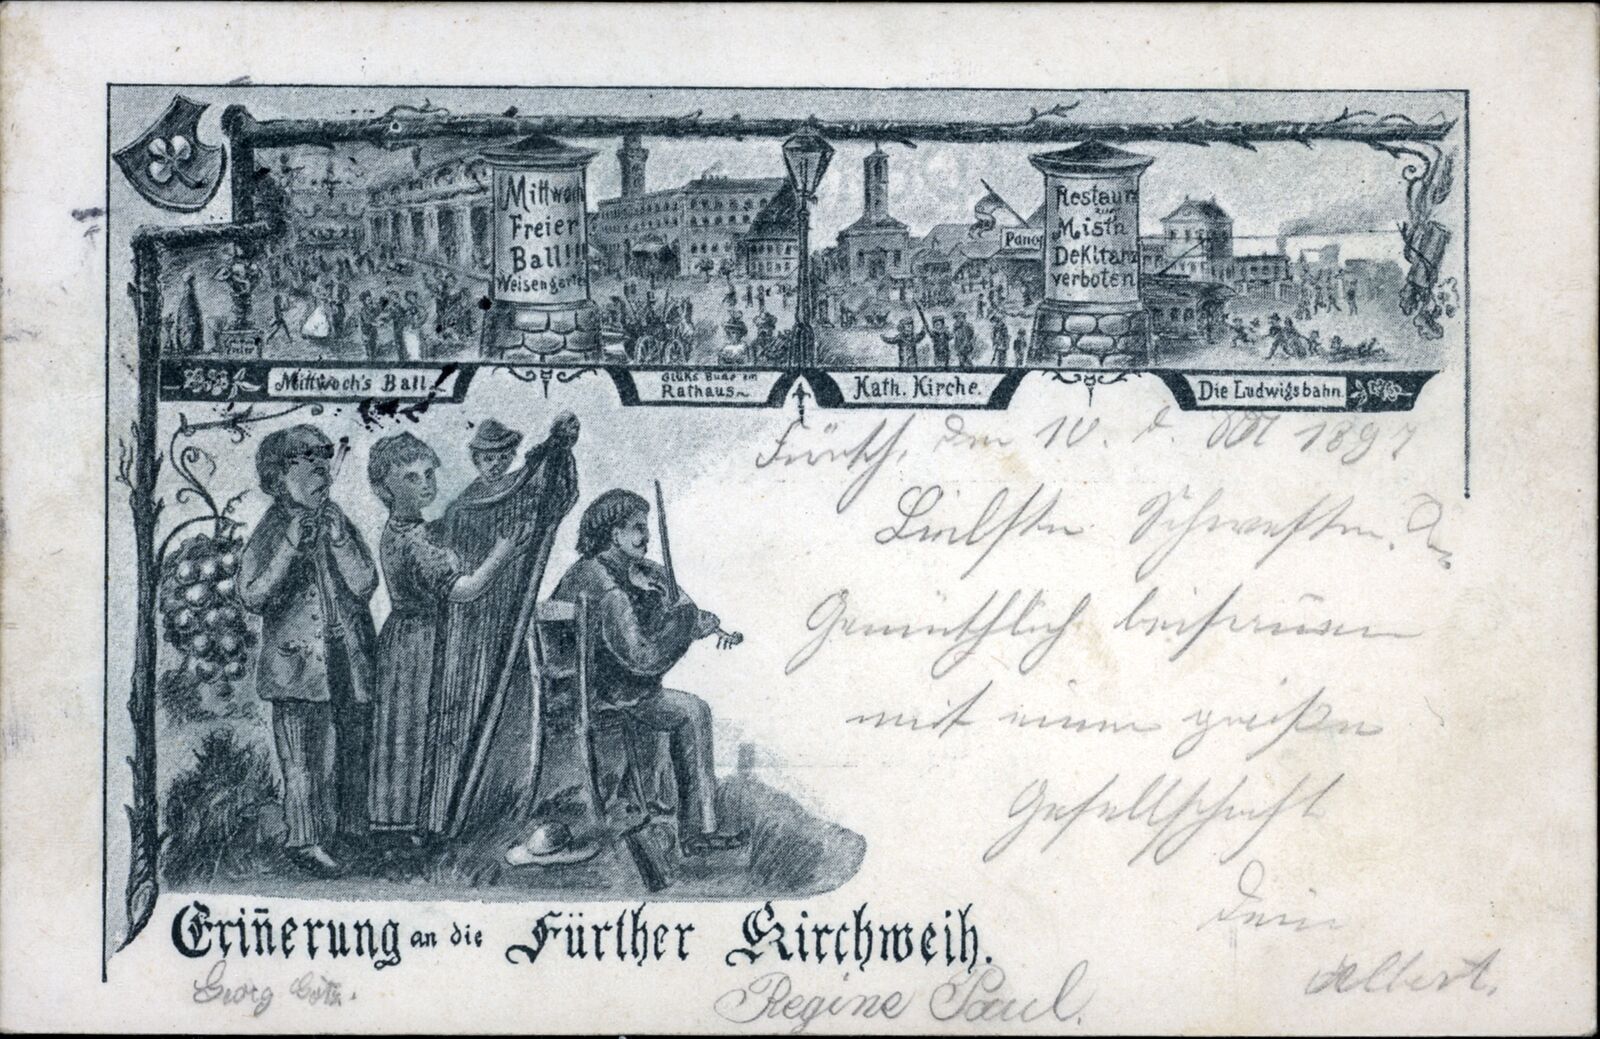 Mittwoch
Freier
Ball!!!
Weisengarten
Restaur
zur
Mistn
DeKltanz
verboten
Pano
Mittwoch's Ball.
Glüks Bude im
Rathaus.
Kath. Kirche.
Die Ludwigsbahn.
Fürth, den 10. d. Okt 1897
Liebste Schwester.
Gemüthlich beisamen
mit einer großen
Gesellschaft
Dein
Albert.
Erin̄erung an die Fürther Kirchweih.
Georg
Regine Paul.